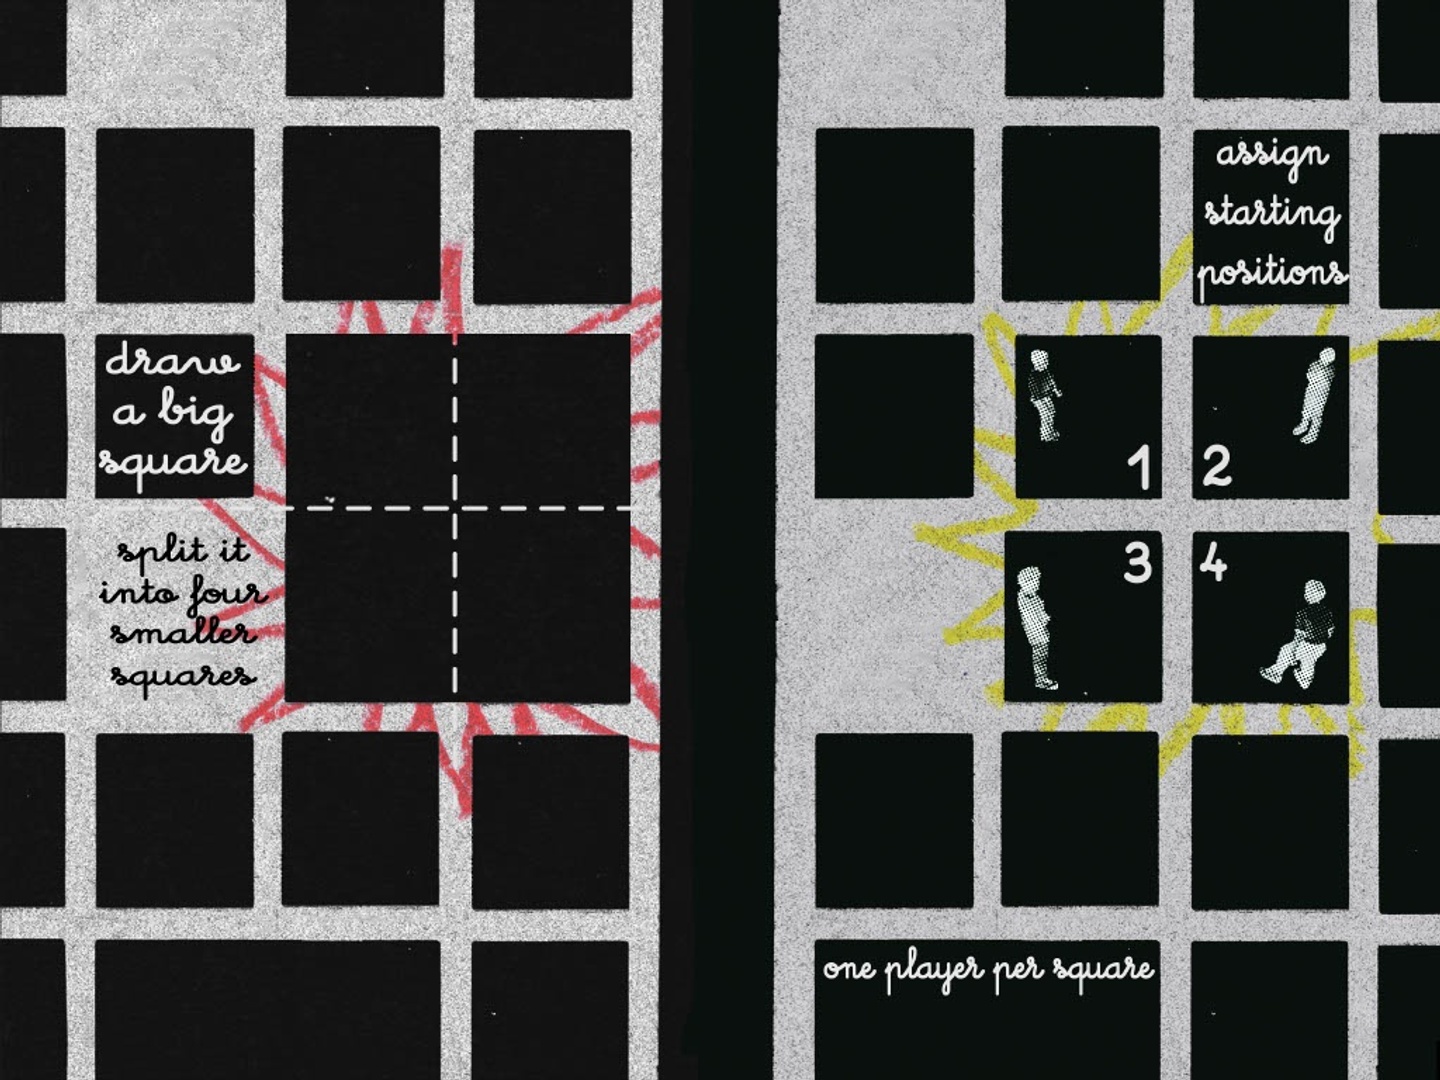 draw
a big
square
split it
into four
smaller
squares
assign
starting
positions
1
2
3
4
one player per square